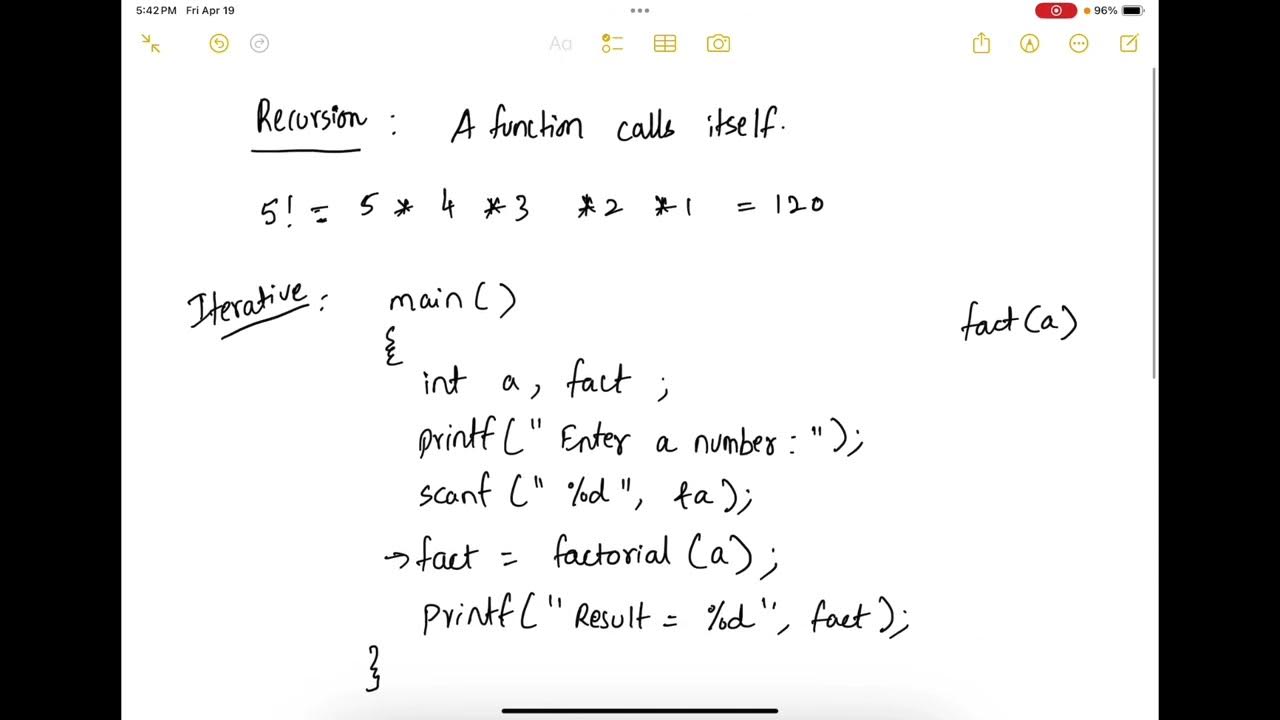 5:42 PM Fri Apr 19
96%
Aa
Recursion : A function calls itself.
5! = 5 * 4 * 3 * 2 * 1 = 120
Iterative : main ( )
fact (a)
{
int a, fact ;
printf (" Enter a number : ");
scanf (" %d ", &a);
→ fact = factorial (a);
printf (" Result = %d ", fact);
}